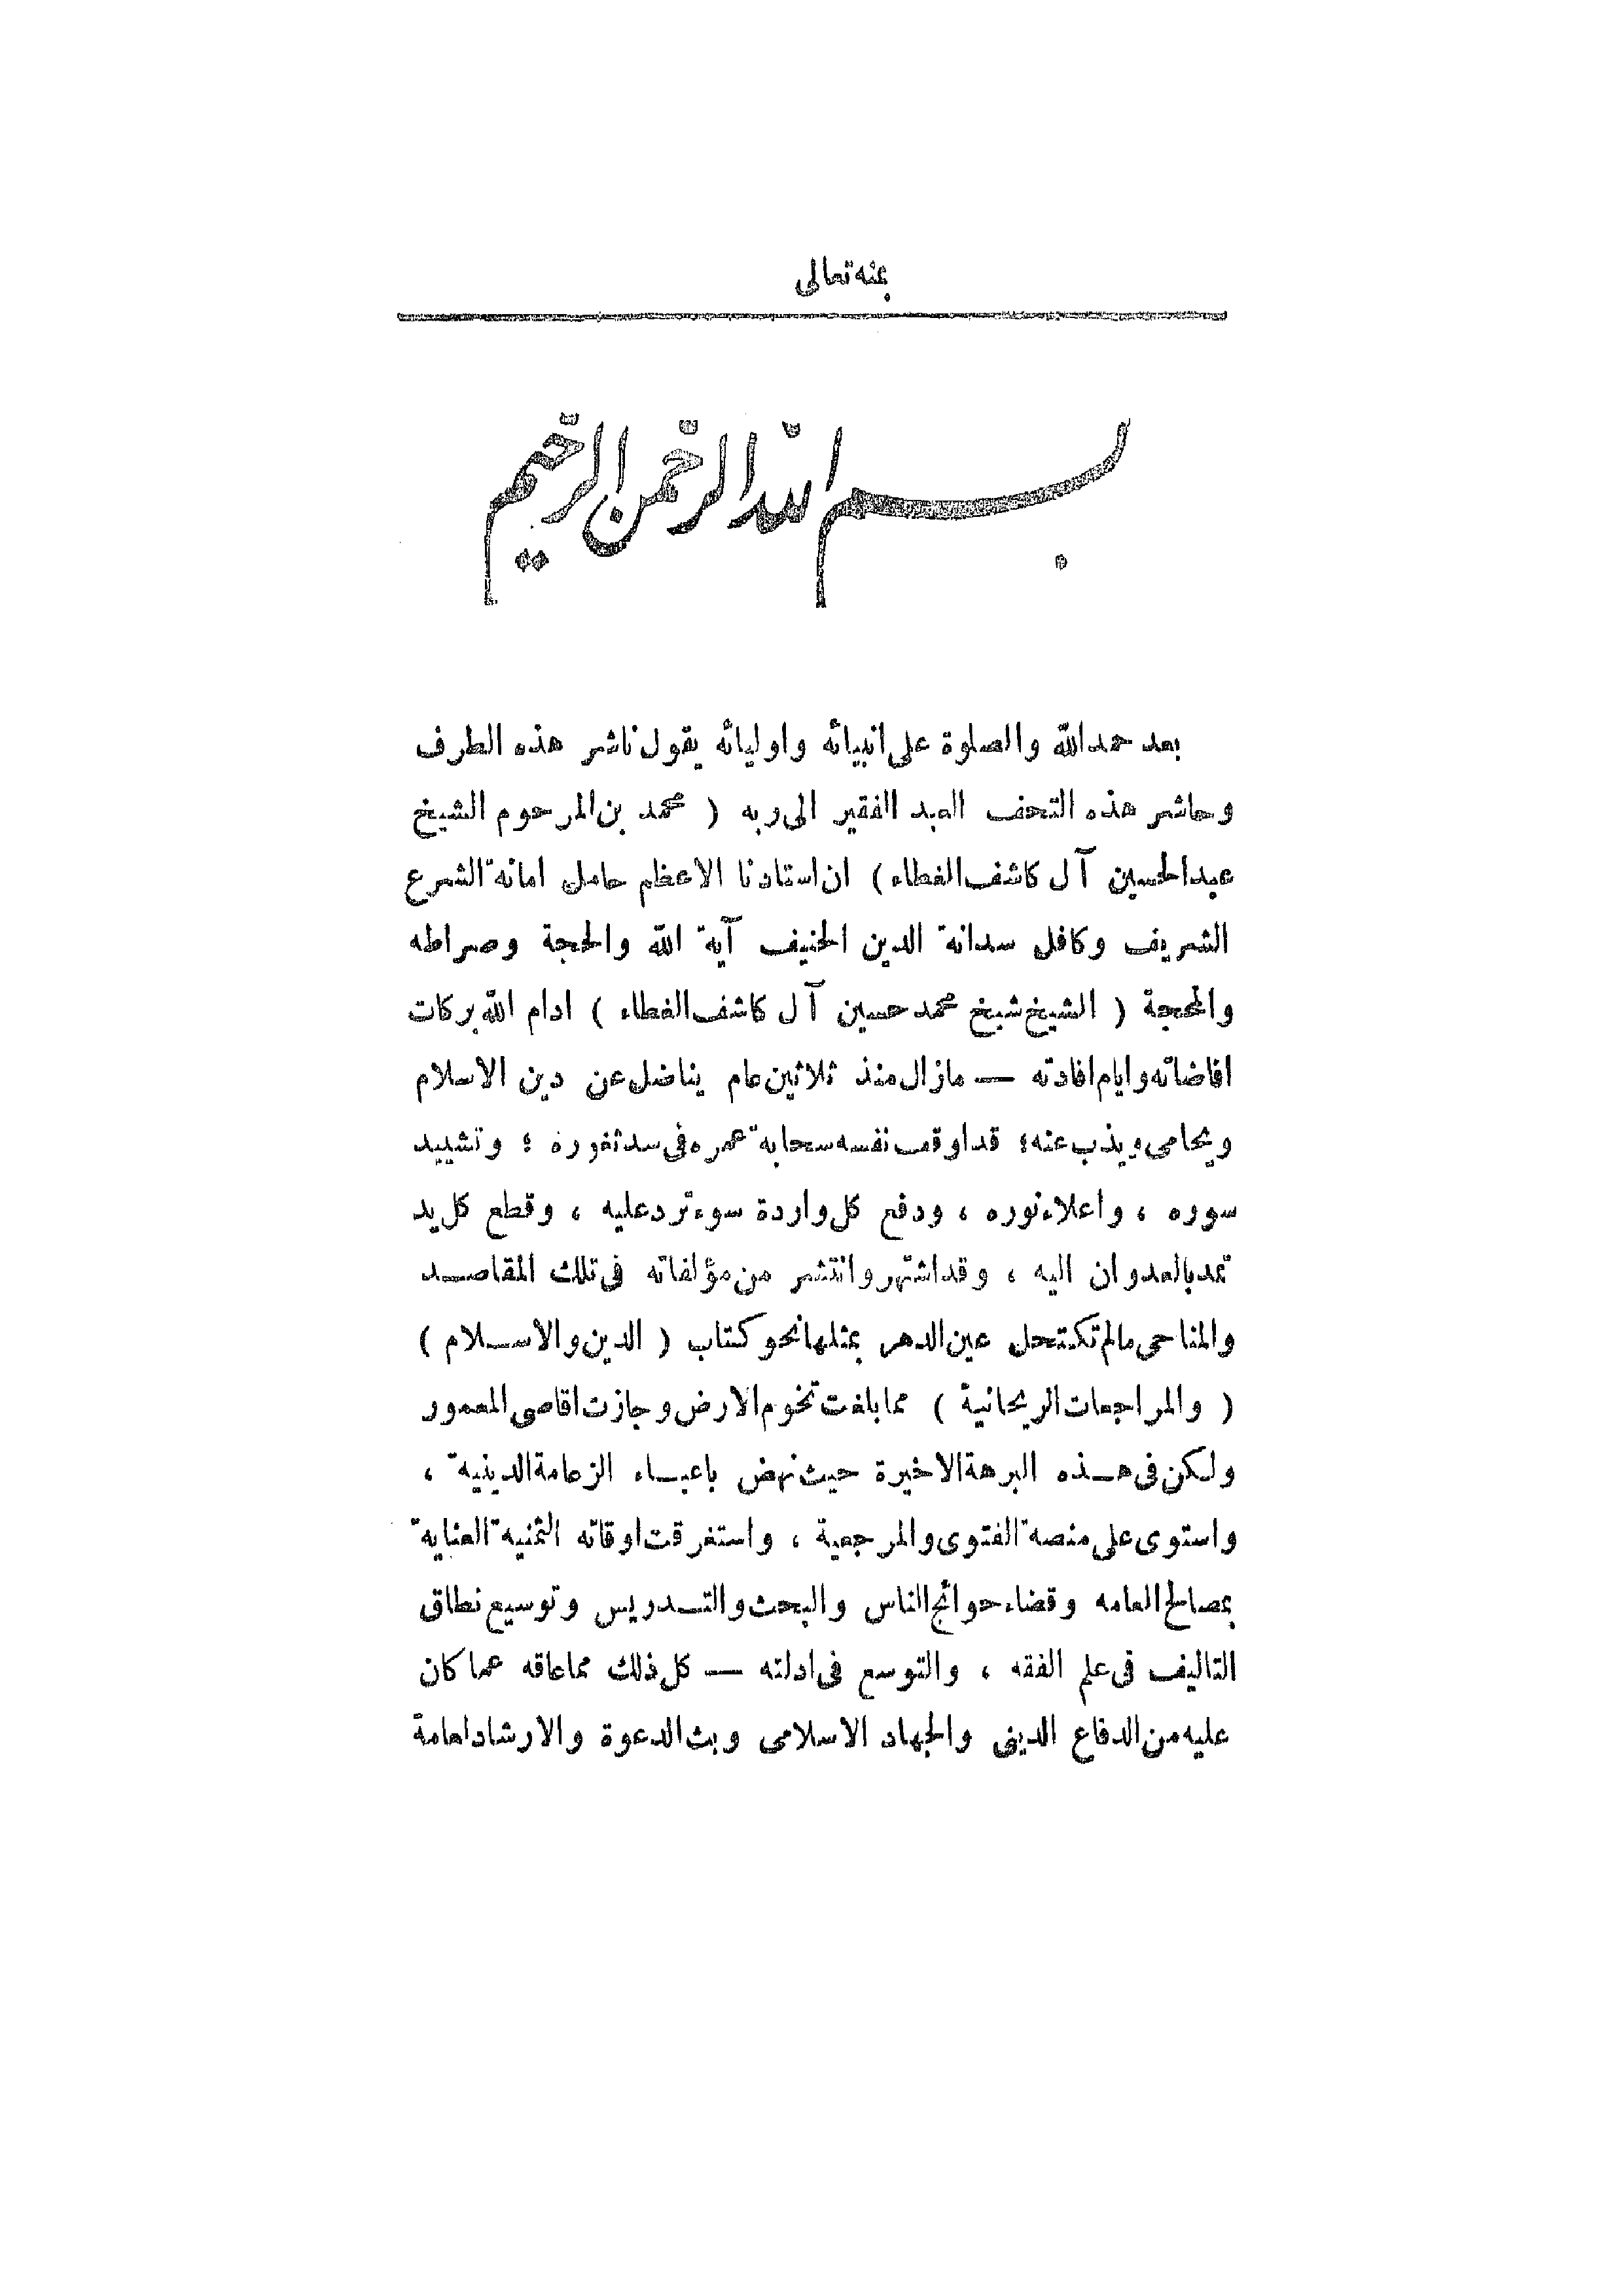 بمنه تعالى
بسم الله الرحمن الرحيم
بعد حمد الله والصلوة على انبيائه واوليائه يقول ناشر هذه الطرف
وحاشر هذه التحف العبد الفقير الى ربه ( محمد بن المرحوم الشيخ
عبد الحسين آل كاشف الغطاء ) ان استادنا الاعظم حامل امانة الشرع
الشريف وكافل سدانة الدين الحنيف آية الله والحجة وصراطه
والمحجة ( الشيخ شيخ محمد حسين آل كاشف الغطاء ) ادام الله بركات
افاضاته وايام افادته — مازال منذ ثلاثين عام يناضل عن دين الاسلام
ويحامى ويذب عنه ؛ قد اوقف نفسه سحابة عمره فى سد ثغوره ؛ وتشييد
سوره ، واعلاء نوره ، ودفع كل واردة سوء ترد عليه ، وقطع كل يد
تمد بالعدوان اليه ، وقد اشتهر وانتشر من مؤلفاته فى تلك المقاصد
والمناحى مالم تكتحل عين الدهر بمثلها نحو كتاب ( الدين والاسلام )
( والمراجعات الريحانية ) مما بلغت تخوم الارض وجازت اقاصى المعمور
ولكن فى هذه البرهة الاخيرة حيث نهض باعباء الزعامة الدينية ،
واستوى على منصة الفتوى والمرجعية ، واستغرقت اوقاته الثمنية العناية
بمصالح العامه وقضاء حوائج الناس والبحث والتدريس وتوسيع نطاق
التاليف فى علم الفقه ، والتوسع فى ادلته — كل ذلك مما عاقه عما كان
عليه من الدفاع الدينى والجهاد الاسلامى وبث الدعوة والارشاد لعامة